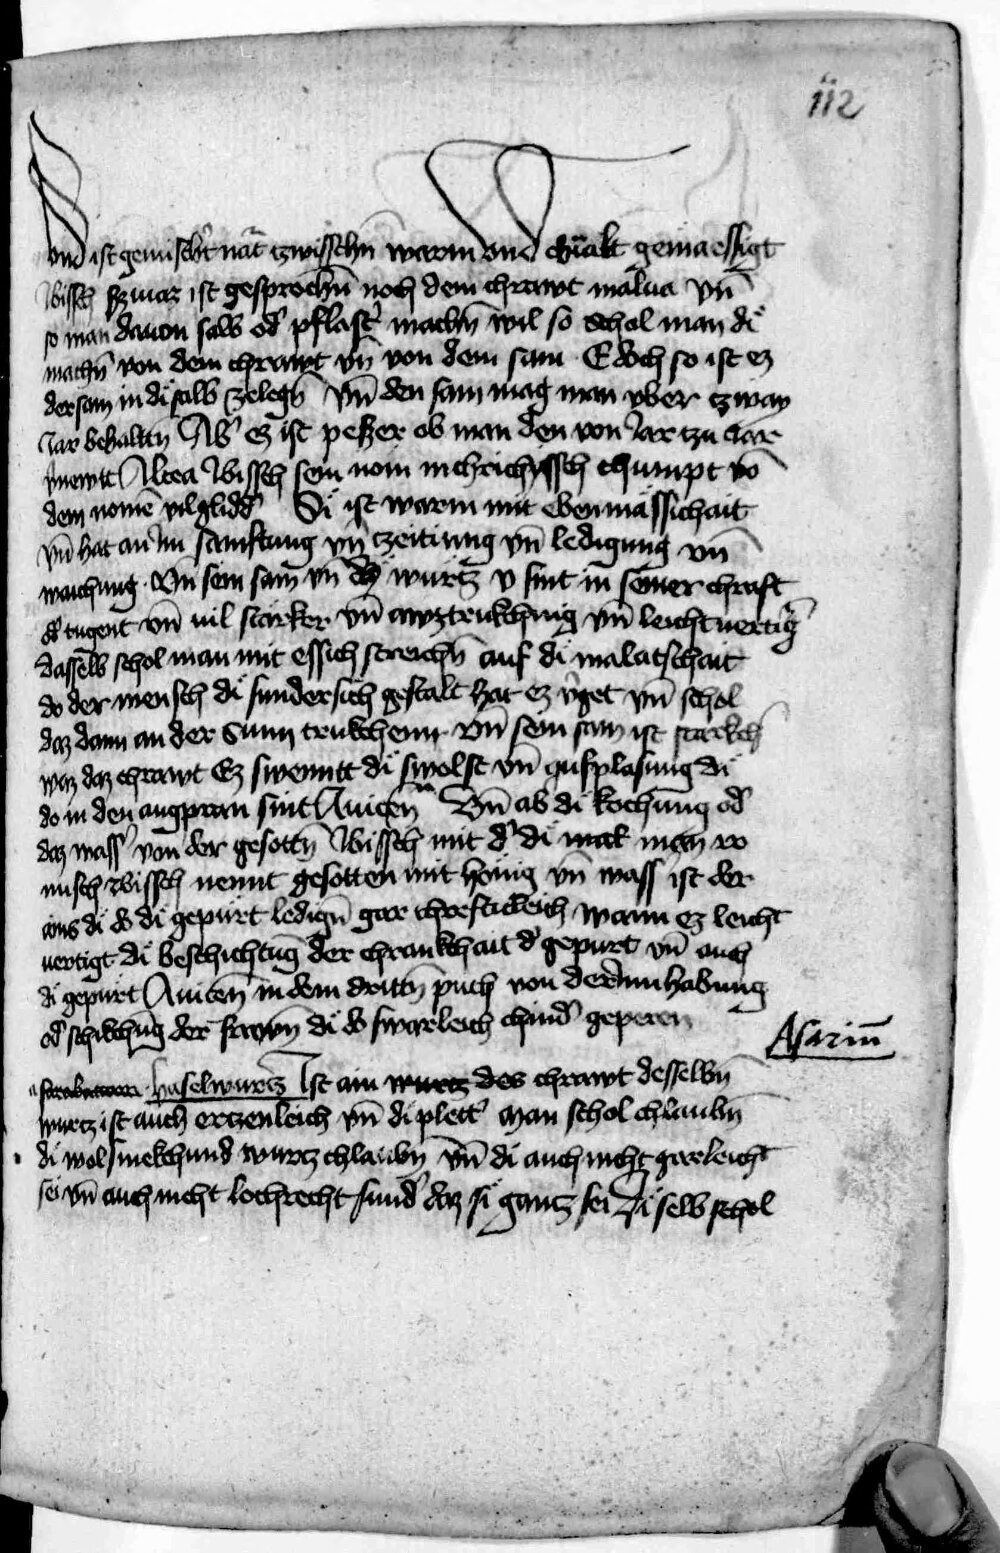 112
vnd ist gemischt' nat' tzwisschn̄ warm vnd chalt gemaessigt
Ibissch ist gesprochn̄ noch dem chrawt malua vn̄
so man dauon salb od' pflast' machn̄ wil so schol man di
machn̄ von dem chrawt vn̄ von dem sam · Edoch so ist ez
der sam in di salb zelegn̄ vn̄ den sam mag man vber tzway
Jar behaltn̄ Ab' ez ist peszer ob man den von Jar tzu Jar
vnewtt Altea Ibissch sein nom in chrichyssch chumpt vō
dem nomē vilglidd' Si ist warm mit ebenmässichait
vn̄ hat an im samftung vn̄ tzeitigung vn̄ ledigung vn̄
waichung · Vn̄ sein sam vn̄ dy wurtz sint in seiner chraft
d' tugent vn̄ vil starker vn̄ awztrukchnūg vn̄ leichtuertig'
dasselb schol man mit essich streichn̄ auf di malatschait
do der mensch di sundersich gestalt hat ez v'get vn̄ schol
daz dann an der Sunn trukchenn vn̄ sein sam ist starkch'
waz daz chrawt Ez swenntt di swolst vn̄ aufplasung di
do in den augpran sint Auicen̄ Vn̄ ab di kochung od'
daz wass' von der gesottn̄ Ibissch mit d' di mak man ro
misch Ibissch nennt gesotten mit honig vn̄ wass' ist der
ains di do di gepurt ledign̄ gar chrefticleich wann ez leicht
uertigt di beschichtūg der chrankchait d' gepurt vn̄ auch
di gepurt Auicen̄ in dem drittn̄ puch von der Inn habung
od' schikchūg der frawn̄ di do swarleich chind' geperen
Asariū
haselwurtz Ist ain wurtz des chrawt desselbn̄
wurtz ist auch ertzenleich vn̄ di plett' Man schol chlaubn̄
di wol smekchund wurtz chlaubn̄ vn̄ di auch nicht gar leicht
sei vn̄ auch nicht lochrecht sund' daz si gantz sei Di selb schol